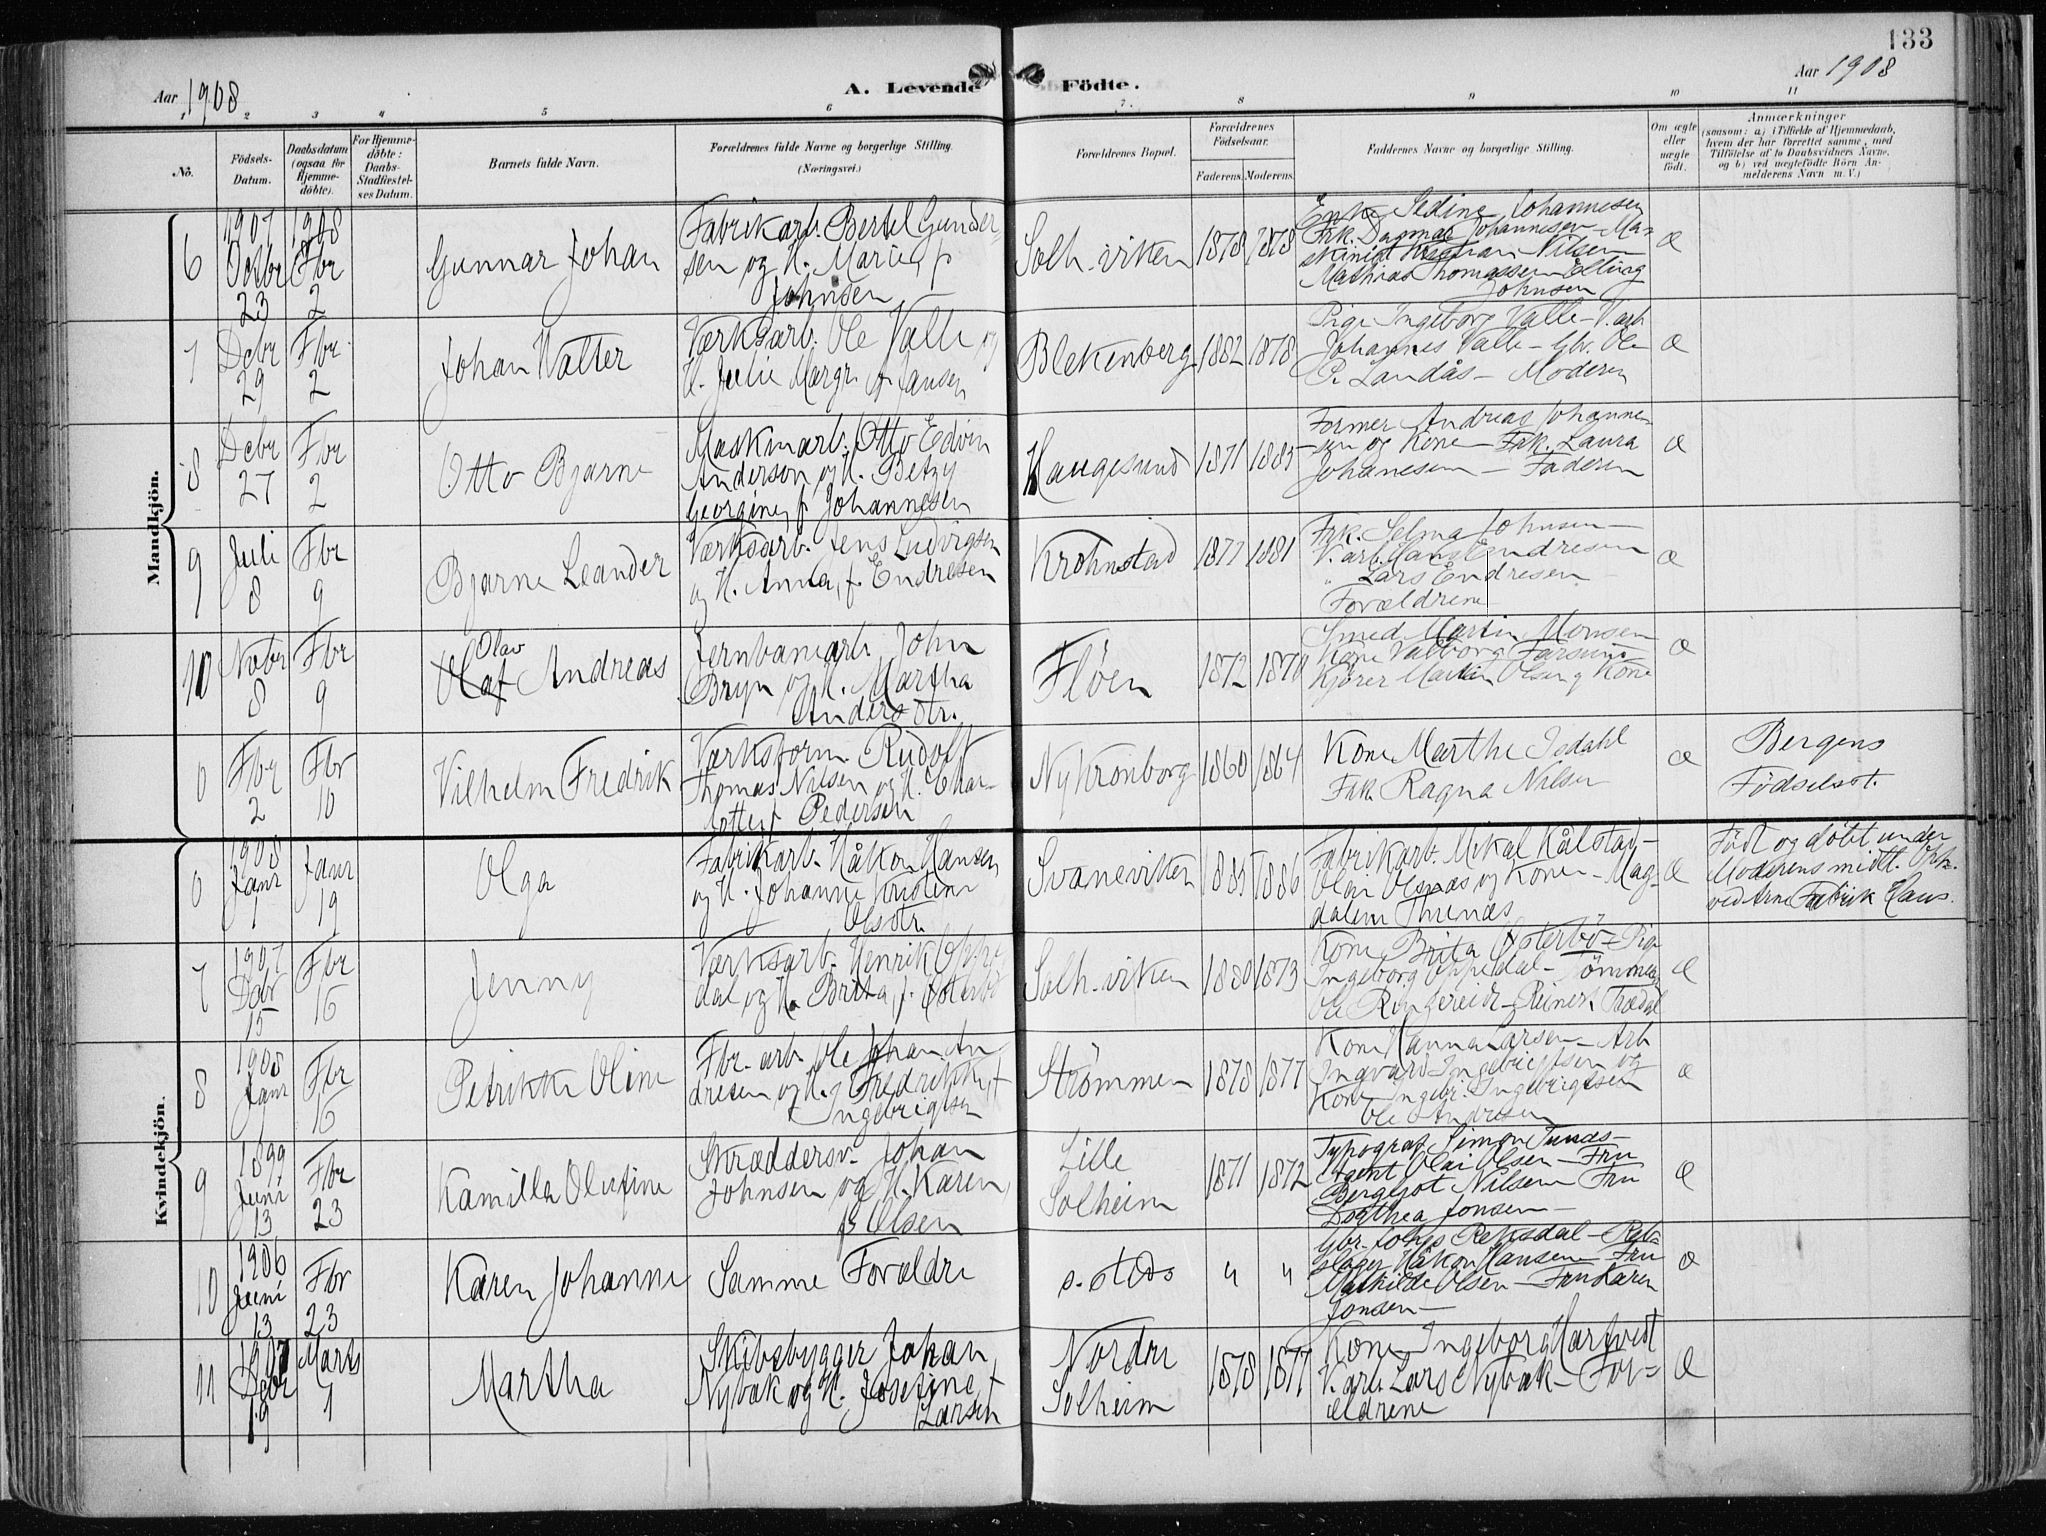 133
Aar 1908
A. Levende Födte.
Aar 1908
1 2 3 4 5 6 7. 8 9 10 11
Nô.
Födsels-Datum.
Daabsdatum (ogsaa for Hjemme-döbte).
For Hjemme-döbte: Daabs-Stadfæstel-ses Datum.
Barnets fulde Navn.
Forældrenes fulde Navne og borgerlige Stilling. (Næringsvei.)
Forældrenes Bopæl.
Forældrenes Födselsaar.
Faderens. Moderens.
Faddernes Navne og borgerlige Stilling.
Om ægte eller uægte födt.
Anmærkninger
(saasom: a) i Tilfælde af Hjemmedaab,
hvem der har forrettet samme, med
Tilföielse af to Daabsvidners Navne,
og b) ved uægtefödte Börn An-
melderens Navn m. V.)
Mandkjön.
6 1907 Octbr 23 1908 Fbr 2
Gunnar Johan
Fabrikarb. Bertel Gunder-
sen og H. Marie, f.
Johnsen
Solh.viken 1878 1878
Enke Sedine Johannesen
Frk. Dagmar Johannesen - Ma-
skinist Kristian Nilsen
Mathias Thomassen Elling
Johnsen
æ
7 Debr 29 Fbr 2
Johan Walter
Værksarb. Ole Valle og
H. Julie Margr. f. Jansen
Blekenberg 1882 1878
Pige Ingeborg Valle - V.arb.
Johannes Valle - Gbr. Ole
P. Landås - Moderen
æ
8 Debr 27 Fbr 2
Otto Bjarne
Maskinarb. Otto Edvin
Anderson og H. Betzy
Georgine, f. Johannesen
Haugesund 1871 1885
Former Andreas Johanne-
sen og Kone - Frk. Laura
Johanesen - Faderen
æ
9 Juli 8 Fbr 9
Bjarne Leander
Værksarb. Jens Ludvigsen
og H. Anna, f. Endresen
Krohnstad 1877 1881
Frk. Selma Johnsen -
V.arb. Hans Endresen
" Lars Endresen
Forældrene
æ
10 Novbr 8 Fbr 9
Olav
Olaf Andreas
Jernbanearb. John
Bryn og H. Martha
Andersdtr.
Fløen 1872 1870
Smed Martin Monsen
Kone Valborg Farsund
Kjører Martin Olsen og Kone
æ
0 Fbr 2 Fbr 10
Vilhelm Fredrik
Værksform. Rudolf
Thomas Nilsen og H. Char-
lotte, f. Pedersen
Ny Krönborg 1860 1864
Kone Marthe Isdahl
Frk. Ragna Nilsen
æ
Bergens
Födselsst.
Kvindekjön.
6 1908 Janr 1 Janr 19
Olga
Fabrikarb. Håkon Hansen
og H. Johanne Kristine
Olsdtr.
Svaneviken 1885 1886
Fabrikarb. Mikal Kålstad -
Olai Olsnes og Kone - Mag-
dalene Thunæs
æ
Födt og döbt under
Moderens midl. Oph.
ved Arne Fabrik Haus.
7 1907 Debr 15 Fbr 16
Jenny
Værksarb. Henrik Oppe-
dal og H. Brita, f. Østerbö
Solh.viken 1880 1873
Kone Brita Østerbö - Pige
Ingeborg Oppedal - Tömmerm.
Ole Ringereide - Reinert Trædal
æ
8 1908 Janr Fbr 16
Petrikke Oline
Fbr.arb. Ole Johan An-
dresen og H. Fredrikke, f.
Ingebrigtsen
Strömmen 1878 1877
Kone Hanna Larsen - Arb
Ingvard Ingebrigtsen og
Kone Ingebr. Ingebrigtsen
Ole Andresen
æ
9 1899 Juni 13 Fbr 23
Kamilla Olufine
Skræddersv. Johan
Johnsen og H. Karen,
f. Olsen
Lille
Solheim
1871 1872
Typograf Simon Tunæs -
Agent Olai Olsen - Fru
Bergljot Nilsen Fru
Dorthea Jonsen -
æ
10 1906 Juni 13 Fbr 23
Karen Johanne
Samme Forældre
s. steds " "
Gbr. Johs Reksdal - Reb-
slager Håkon Hansen - Fru
Mathilde Olsen - Fru Karen
Jonsen -
æ
11 1907 Debr 19 Marts 1
Martha
Skibsbygger Johan
Nybak og H. Josefine, f.
Larsen
Nordre
Solheim
1878 1877
Kone Ingeborg Harfvedt
V.arb. Lars Nybak - For-
ældrene
æ